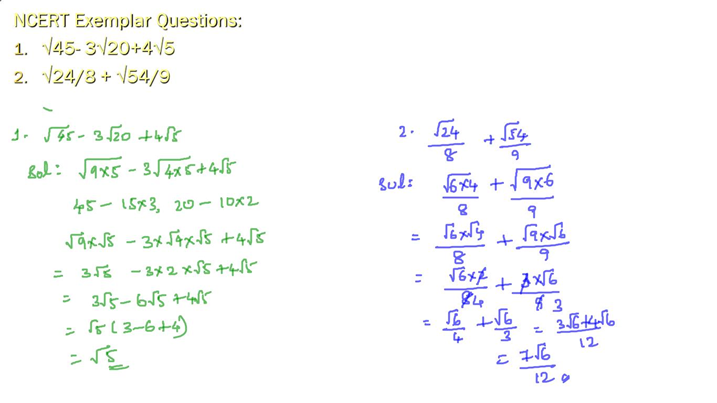 NCERT Exemplar Questions:
1. √45- 3√20+4√5
2. √24/8 + √54/9
1. √45 - 3√20 + 4√5
Sol: √9×5 - 3√4×5 + 4√5
45 - 15×3, 20 - 10×2
√9×√5 - 3×√4×√5 + 4√5
= 3√5 - 3×2×√5 + 4√5
= 3√5 - 6√5 + 4√5
= √5 (3-6+4)
= √5
2. √24/8 + √54/9
Sol: √6×4/8 + √9×6/9
= √6×√4/8 + √9×√6/9
= √6×2/8 4 + 3×√6/9 3
= √6/4 + √6/3 = 3√6+4√6/12
= 7√6/12